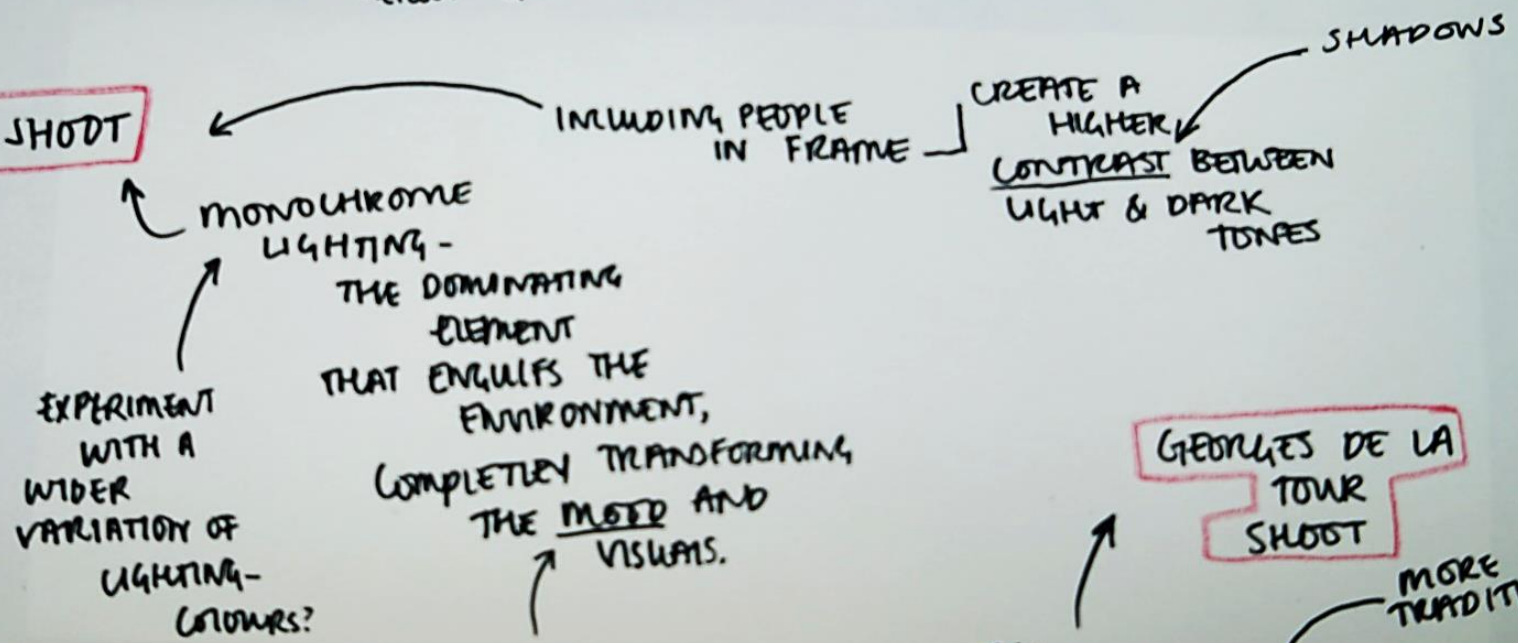 SHADOWS
SHOOT
INCLUDING PEOPLE
IN FRAME
CREATE A
HIGHER
CONTRAST BETWEEN
LIGHT & DARK
TONES
MONOCHROME
LIGHTING -
THE DOMINATING
ELEMENT
THAT ENGULFS THE
ENVIRONMENT,
COMPLETLEY TRANSFORMING
THE MOOD AND
VISUALS.
EXPERIMENT
WITH A
WIDER
VARIATION OF
LIGHTING-
COLOURS?
GEORGES DE LA
TOUR
SHOOT
MORE